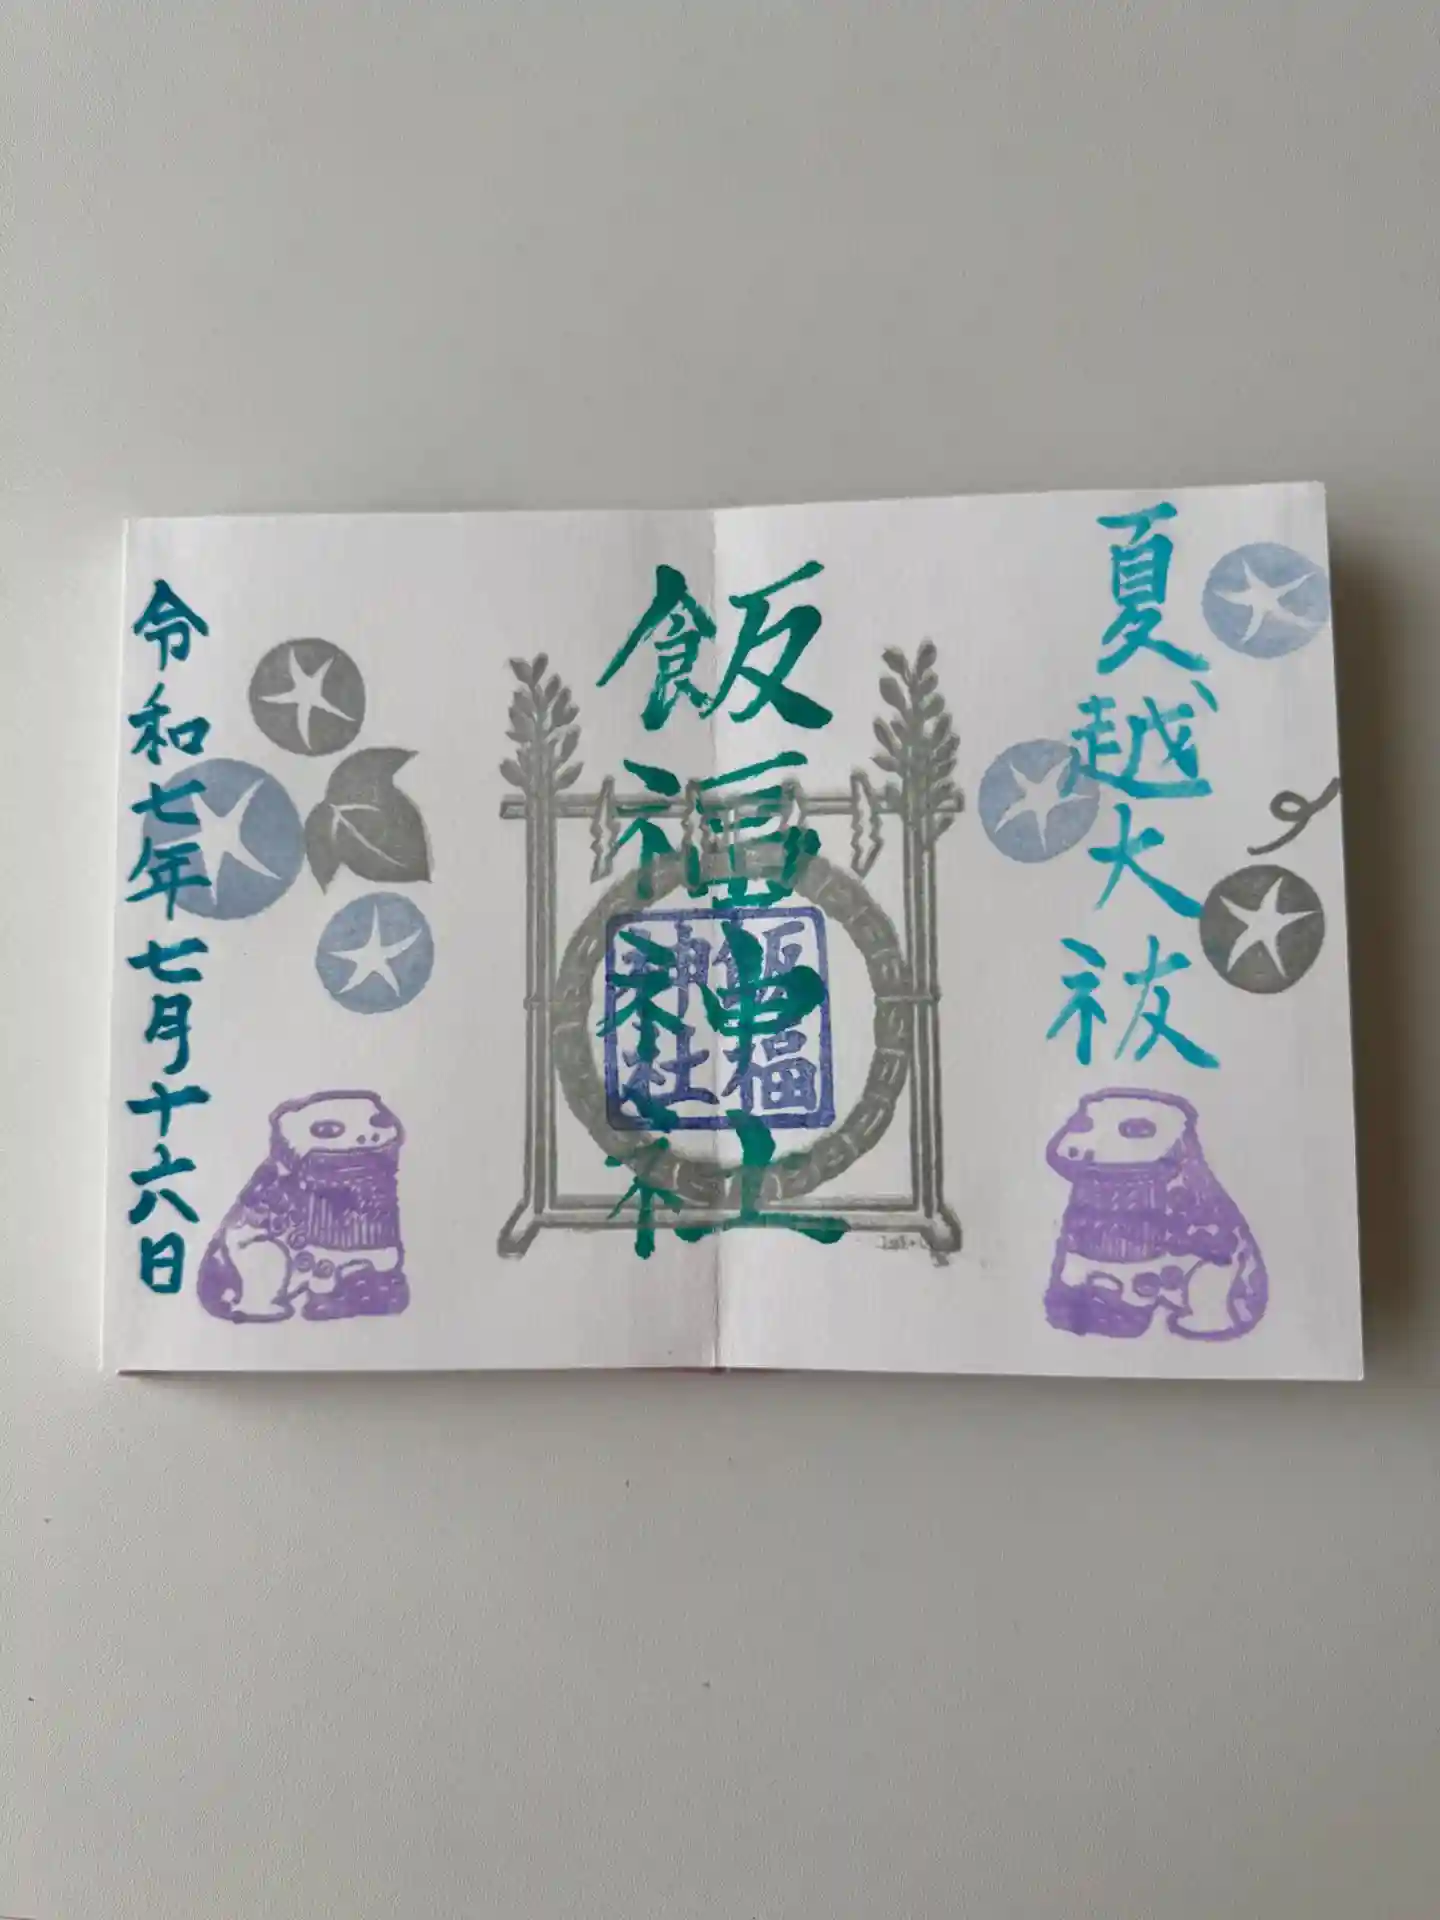 夏越大祓
飯福神社
飯福
神社
令和七年七月十六日